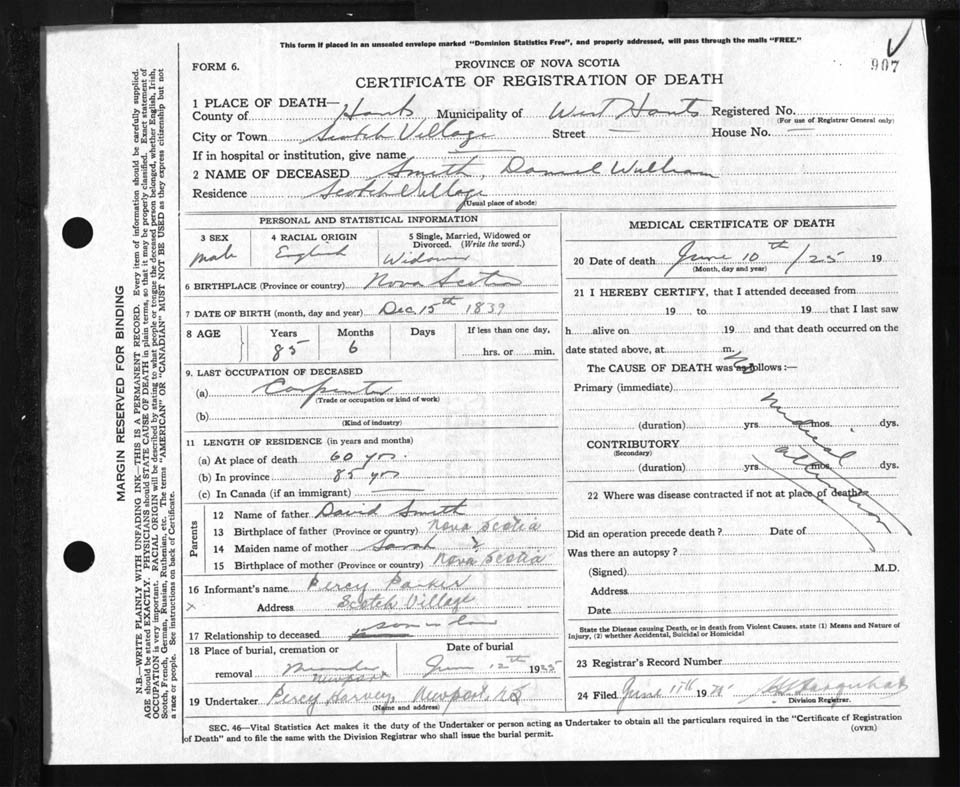 This form if placed in an unsealed envelope marked "Dominion Statistics Free", and properly addressed, will pass through the mails "FREE."
FORM 6. PROVINCE OF NOVA SCOTIA 907
CERTIFICATE OF REGISTRATION OF DEATH
1 PLACE OF DEATH—
County of Hants Municipality of West Hants Registered No.
(For use of Registrar General only)
City or Town Scotch Village Street — House No. —
If in hospital or institution, give name —
2 NAME OF DECEASED Smith, Daniel William
Residence Scotch Village
(Usual place of abode)
PERSONAL AND STATISTICAL INFORMATION
3 SEX 4 RACIAL ORIGIN 5 Single, Married, Widowed or Divorced. (Write the word.)
Male English Widower
6 BIRTHPLACE (Province or country) Nova Scotia
7 DATE OF BIRTH (month, day and year) Dec. 15th 1839
8 AGE Years Months Days If less than one day,
85 6 hrs. or min.
9. LAST OCCUPATION OF DECEASED
(a) Carpenter
(Trade or occupation or kind of work)
(b)
(Kind of industry)
11 LENGTH OF RESIDENCE (in years and months)
(a) At place of death 60 yrs.
(b) In province 85 yrs
(c) In Canada (if an immigrant) —
Parents
12 Name of father David Smith
13 Birthplace of father (Province or country) Nova Scotia
14 Maiden name of mother Sarah ?
15 Birthplace of mother (Province or country) Nova Scotia
16 Informant's name Percy Parker
x Address Scotch Village
17 Relationship to deceased son in law
18 Place of burial, cremation or Date of burial
removal Meander June 12th 1925
Newport
19 Undertaker Percy Harvey, Newport, NS
(Name and address)
MEDICAL CERTIFICATE OF DEATH
20 Date of death June 10th /25 19
(Month, day and year)
21 I HEREBY CERTIFY, that I attended deceased from
19 to 19 that I last saw
h alive on 19 and that death occurred on the
date stated above, at m.
The CAUSE OF DEATH was as follows:—
No
Primary (immediate)
Medical
(duration) yrs. mos. dys.
CONTRIBUTORY
(Secondary)
Attention
(duration) yrs. mos. dys.
22 Where was disease contracted if not at place of death
Did an operation precede death? Date of
Was there an autopsy?
(Signed) M.D.
Address
Date
State the Disease causing Death, or in death from Violent Causes, state (1) Means and Nature of
Injury, (2) whether Accidental, Suicidal or Homicidal
23 Registrar's Record Number
24 Filed June 11th 1925
Division Registrar.
SEC. 46—Vital Statistics Act makes it the duty of the Undertaker or person acting as Undertaker to obtain all the particulars required in the "Certificate of Registration
of Death" and to file the same with the Division Registrar who shall issue the burial permit. (OVER)
MARGIN RESERVED FOR BINDING
N.B.—WRITE PLAINLY WITH UNFADING INK—THIS IS A PERMANENT RECORD. Every item of information should be carefully supplied.
AGE should be stated EXACTLY. PHYSICIANS should STATE CAUSE OF DEATH in plain terms, so that it may be properly classified. Exact statement of
OCCUPATION is very important. RACIAL ORIGIN will be described by stating to what people or tongue the deceased person belonged, whether English, Irish,
Scotch, French, German, Russian, Ruthenian, etc. The terms "AMERICAN" OR "CANADIAN" MUST NOT BE USED as they express citizenship but not
a race or people. See instructions on back of Certificate.